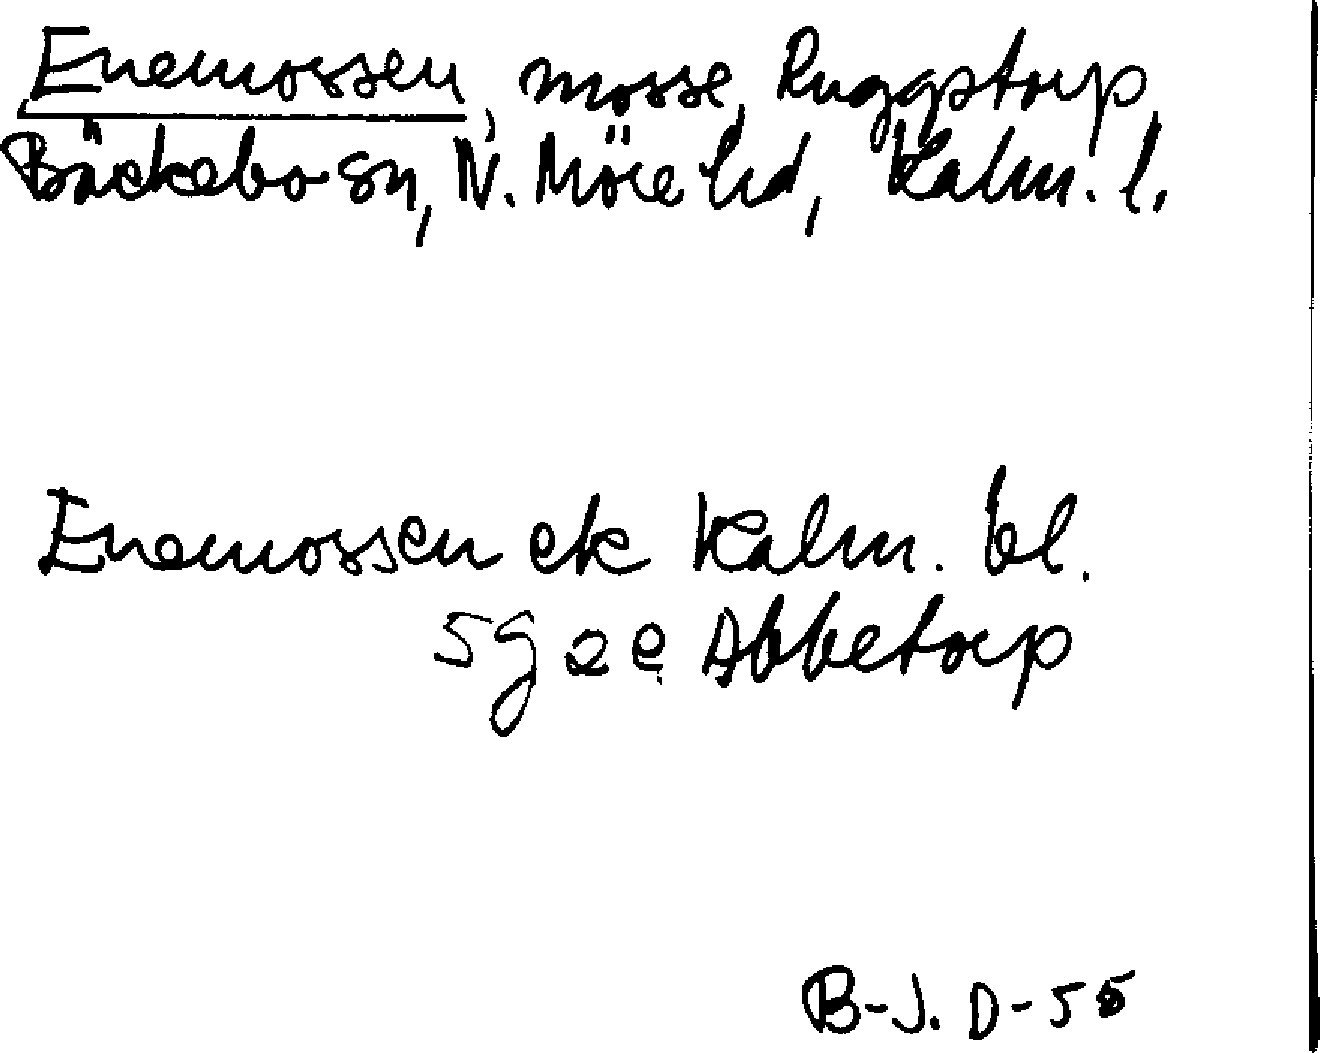 Enemossen, mosse, Ruggstorp,
Bäckebo sn, N. Möre hd, Kalm. l.
Enemossen ek Kalm. bl.
5g 2e Abbetorp
B-J. D-55